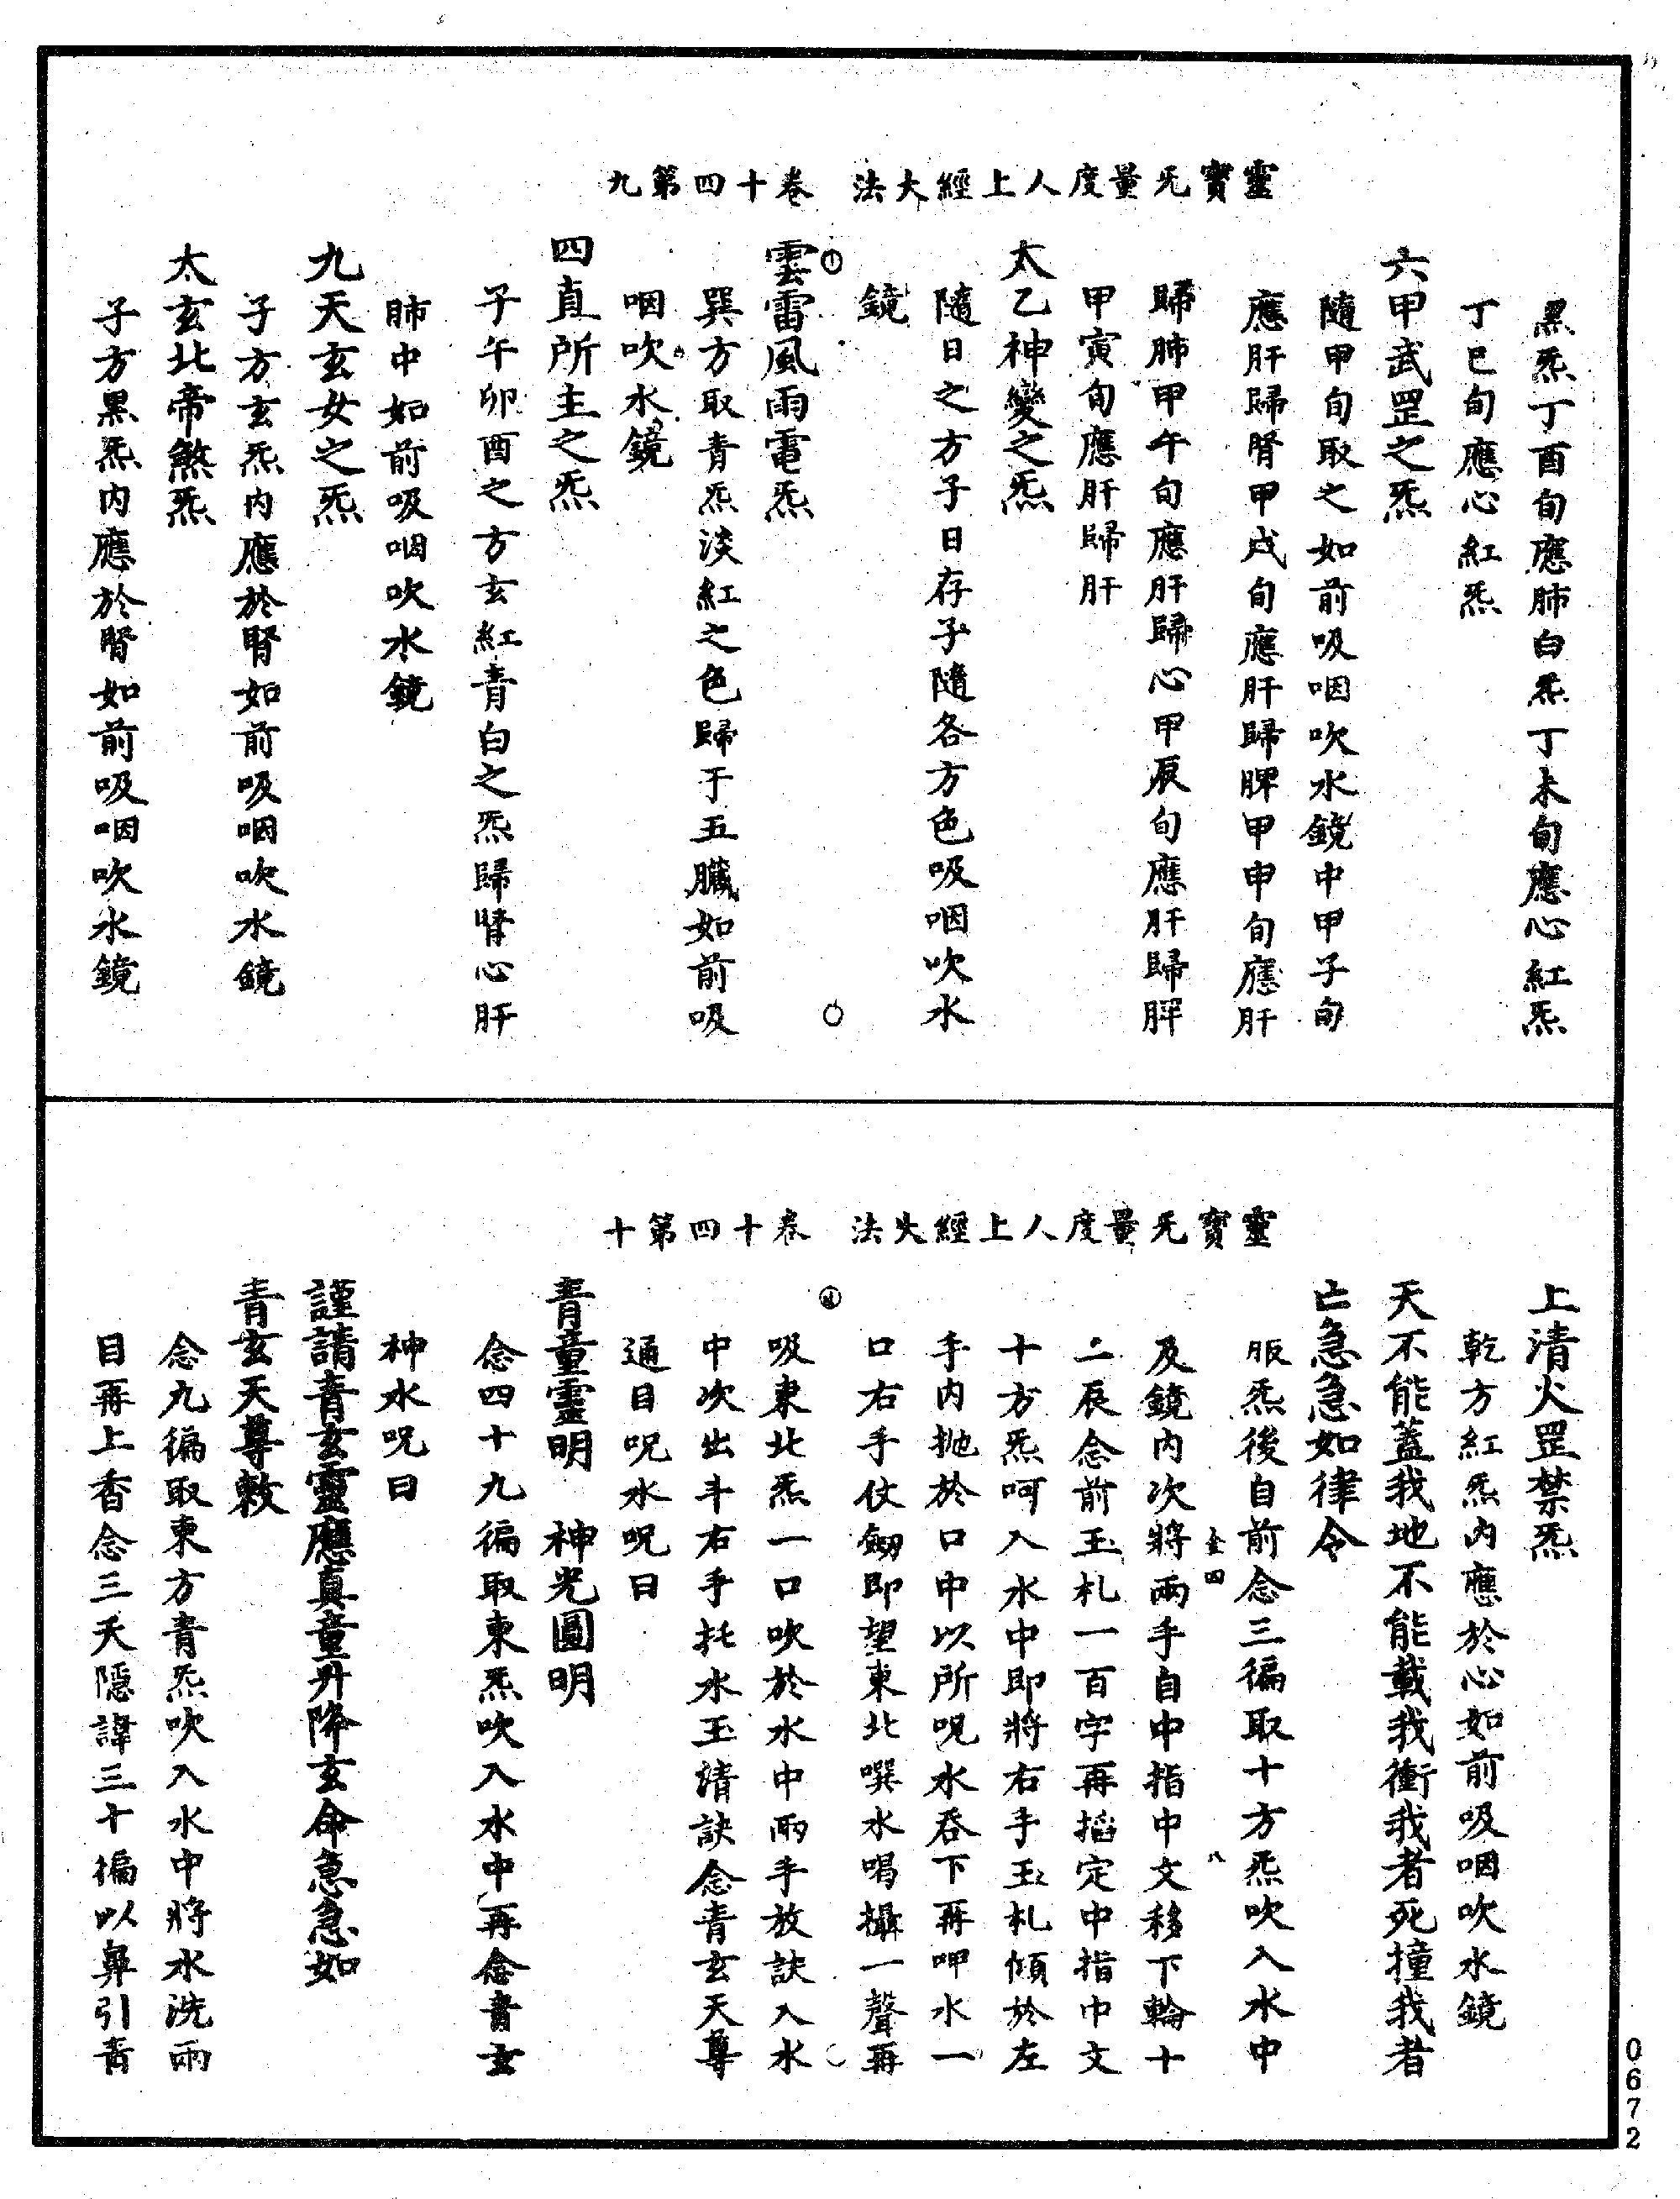 靈寶无量度人上經大法　卷四十第九
黑炁丁酉旬應肺白炁丁未旬應心紅炁
丁巳旬應心紅炁
六甲武罡之炁
隨甲旬取之如前吸咽吹水鏡中甲子旬
應肝歸腎甲戌旬應肝歸脾甲申旬應肝
歸肺甲午旬應肝歸心甲辰旬應肝歸脾
甲寅旬應肝歸肝
太乙神變之炁
隨日之方子日存子隨各方色吸咽吹水
鏡
雲雷風雨電炁
巽方取青炁淡紅之色歸于五臟如前吸
咽吹水鏡
四直所主之炁
子午卯酉之方玄紅青白之炁歸腎心肝
肺中如前吸咽吹水鏡
九天玄女之炁
子方玄炁內應於腎如前吸咽吹水鏡
太玄北帝煞炁
子方黑炁內應於腎如前吸咽吹水鏡
靈寶无量度人上經大法　卷四十第十
上清火罡禁炁
乾方紅炁內應於心如前吸咽吹水鏡
天不能蓋我地不能載我衝我者死撞我者
亡急急如律令
服炁後自前念三徧取十方炁吹入水中
及鏡內次將兩手自中指中文移下輪十
二辰念前玉札一百字再搯定中指中文
十方炁呵入水中即將右手玉札傾於左
手內拋於口中以所呪水吞下再呷水一
口右手仗劒即望東北噀水喝攝一聲再
吸東北炁一口吹於水中兩手放訣入水
中次出斗右手托水玉清訣念青玄天尊
通目呪水呪曰
青童靈明　神光圓明
念四十九徧取東炁吹入水中再念青玄
神水呪曰
謹請青玄靈應真童升降玄命急急如
青玄天尊敕
念九徧取東方青炁吹入水中將水洗兩
目再上香念三天隱諱三十徧以鼻引青
金四
八
0672